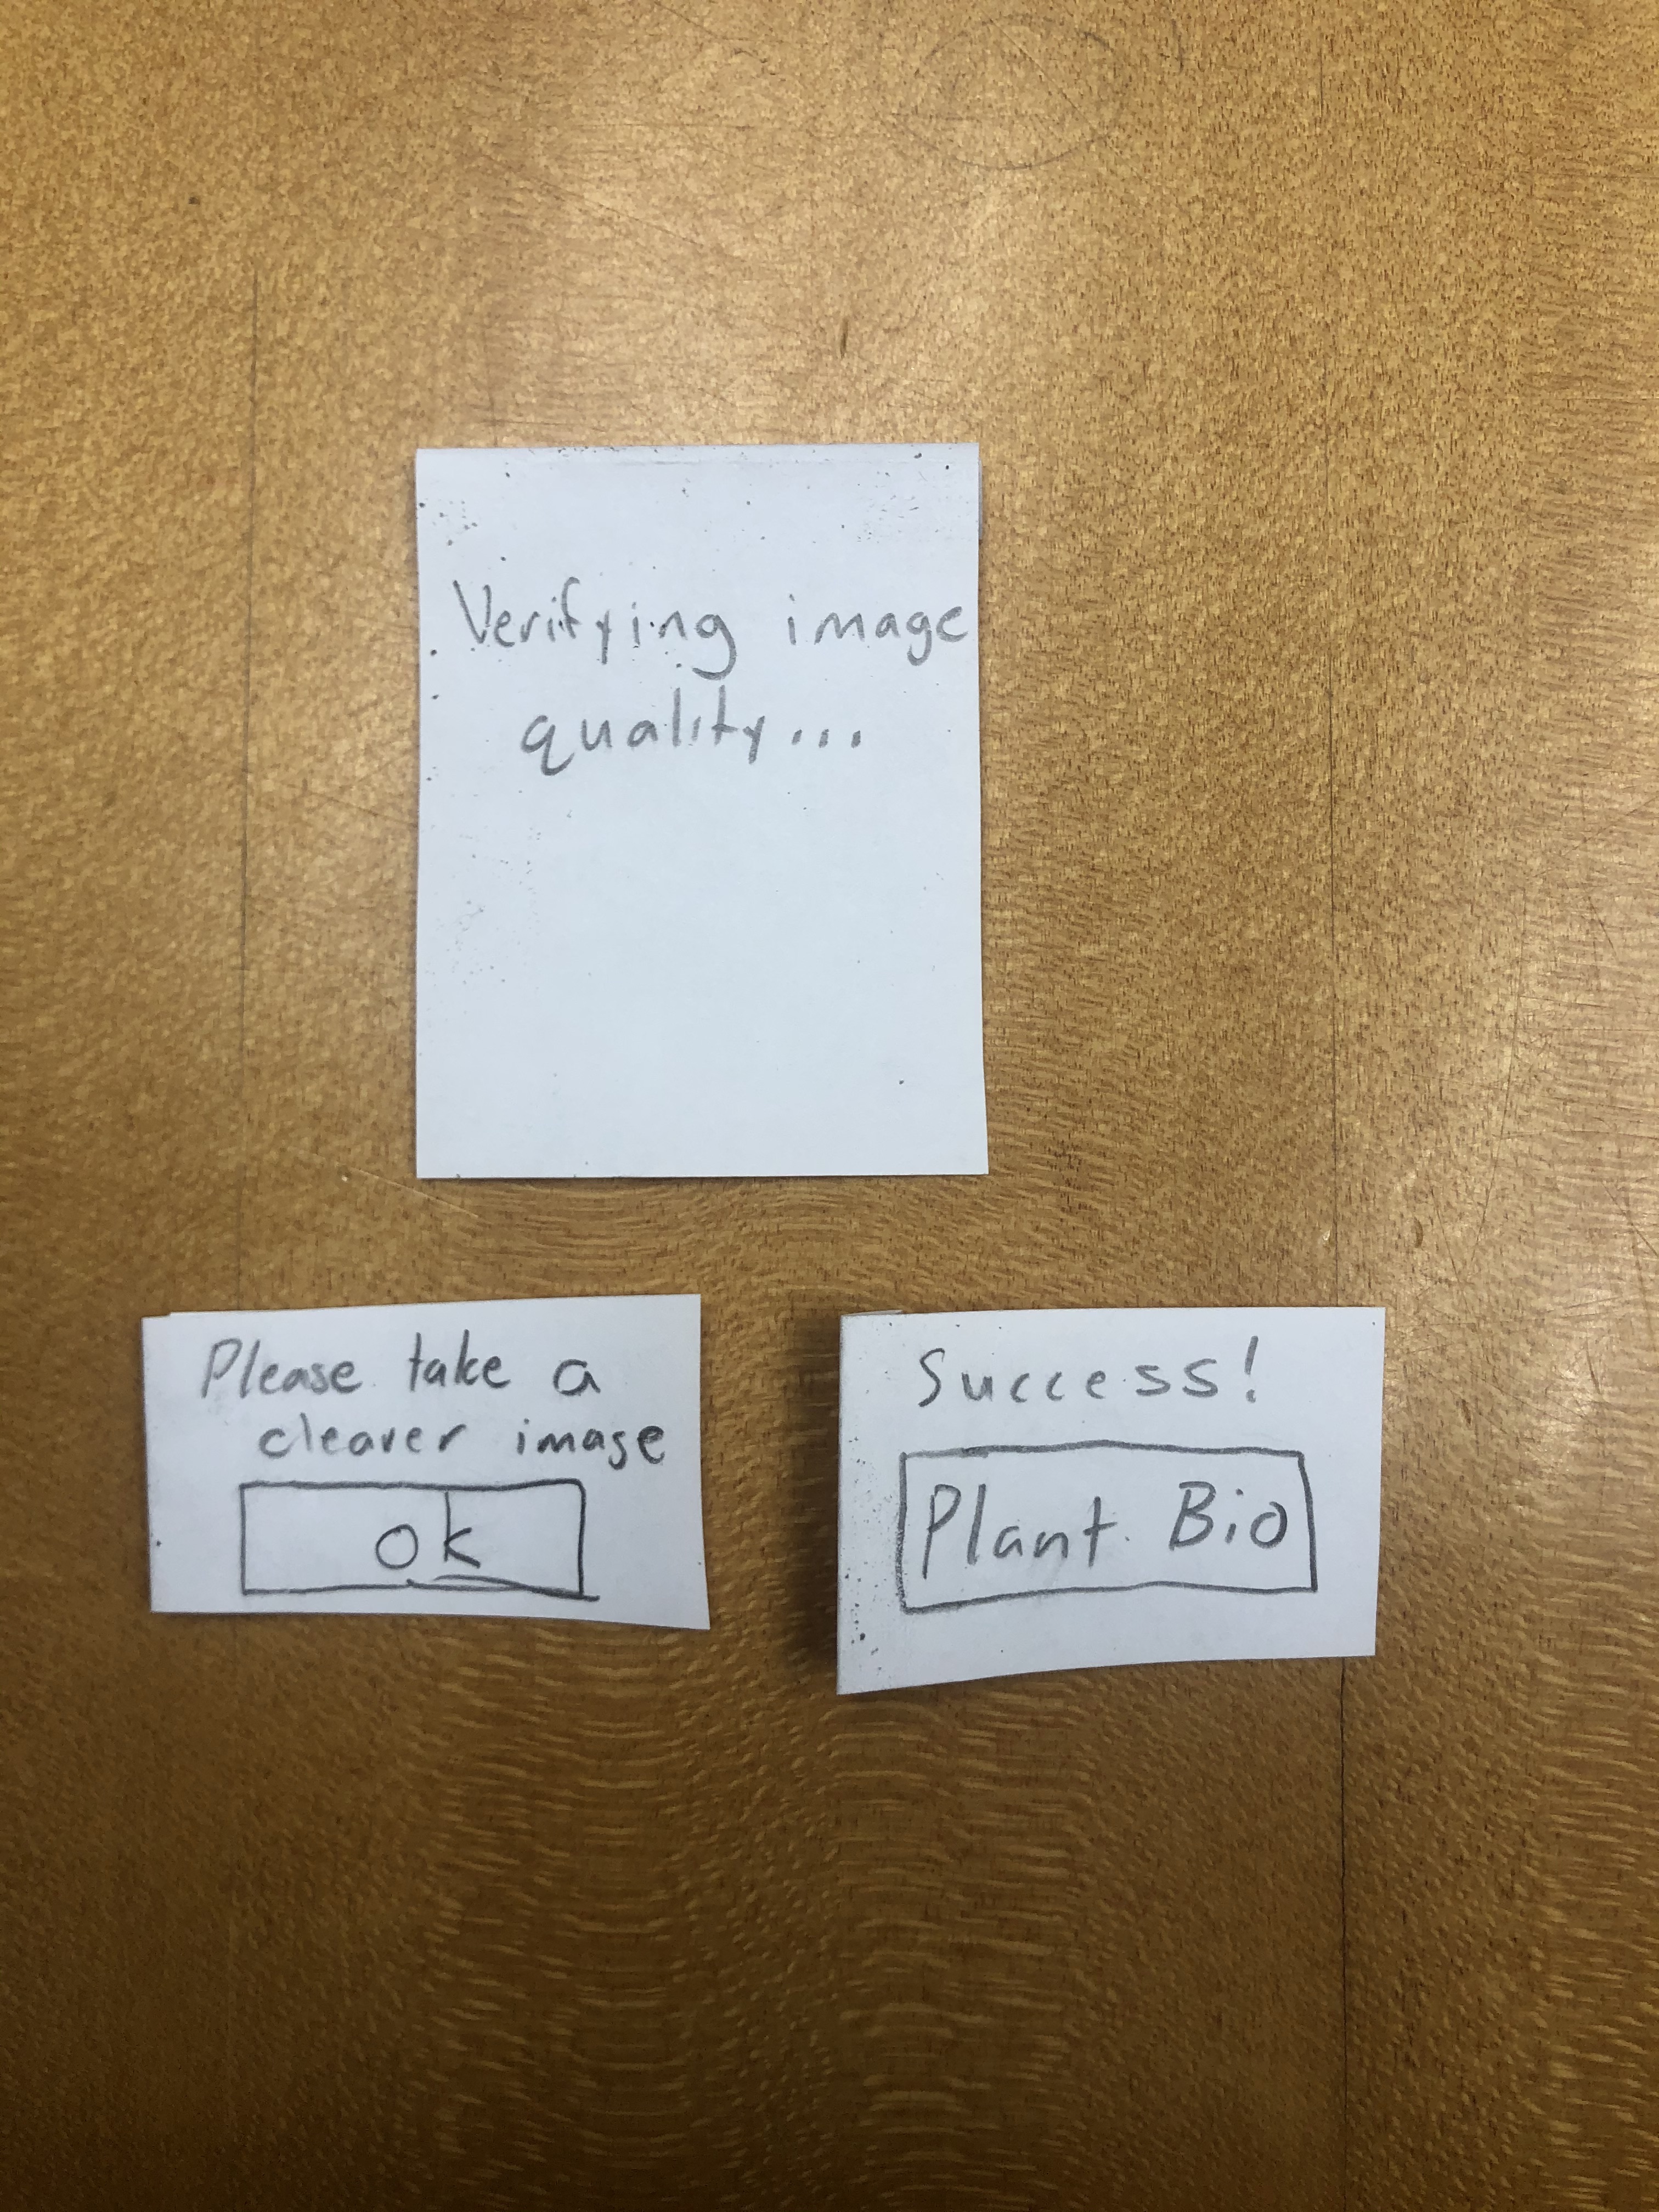 Verifying image
quality...
Please take a
clearer image
ok
Success!
Plant Bio